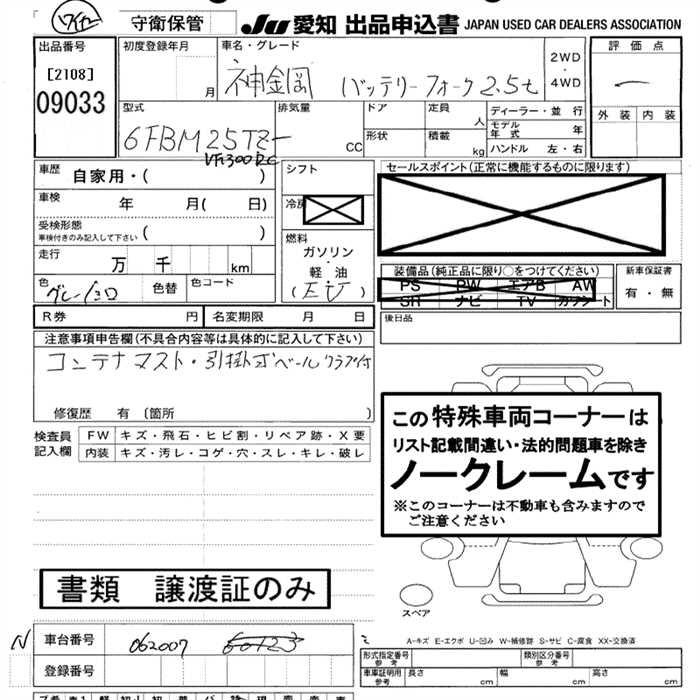 守衛保管
JU 愛知 出品申込書 JAPAN USED CAR DEALERS ASSOCIATION
出品番号
[2108]
09033
初度登録年月
月
車名・グレード
神金岡 バッテリーフォーク 2.5t
2WD
・
4WD
評価点
外装 内装
型式
排気量
CC
ドア
形状
定員
人
積載
kg
ディーラー・並行
モデル年式 年
ハンドル 左・右
車歴
自家用・( )
車検
年 月( 日)
受検形態
車検付きのみ記入して下さい ( )
走行
万 千 km
色
色替
色コード
シフト
冷房
燃料
ガソリン
・
軽・油
(EV)
セールスポイント(正常に機能するものに限ります)
装備品(純正品に限り○をつけてください)
PS PW エアB AW
SR ナビ TV カワシート
新車保証書
有・無
R券 円
名変期限 月 日
後日品
注意事項申告欄(不具合内容等は具体的に記入して下さい)
コンテナマスト・引掛式ベールクランプ付
修復歴 有 〔箇所 〕
検査員記入欄
FW キズ・飛石・ヒビ割・リペア跡・X要
内装 キズ・汚レ・コゲ・穴・スレ・キレ・破レ
この特殊車両コーナーは
リスト記載間違い・法的問題車を除き
ノークレームです
※このコーナーは不動車も含みますので
ご注意ください
書類 譲渡証のみ
スペア
N
車台番号 062007
登録番号
A-キズ E-エクボ U-凹み W-補修跡 S-サビ C-腐食 XX-交換済
形式指定番号
参考
類別区分番号
参考
車庫証明用
参考
長さ cm
幅 cm
高さ cm